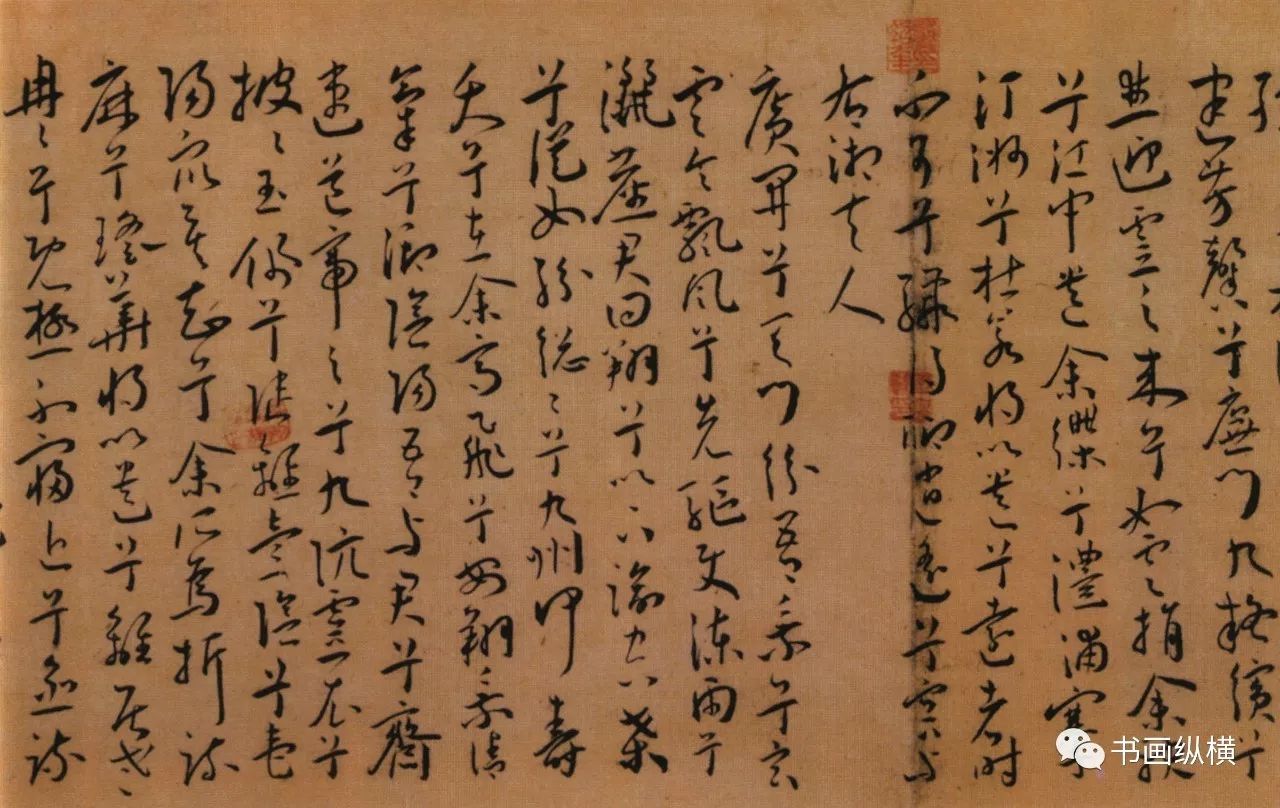 建芳馨兮廡門九嶷繽兮
並迎靈之來兮如雲捐余袂
兮江中遺余褋兮澧浦搴
汀洲兮杜若將以遺兮遠者時
不可兮驟得聊逍遙兮容與
右湘夫人
廣開兮天門紛吾乘兮玄
雲令飄風兮先驅使涷雨兮
灑塵君回翔兮以下踰空桑
兮從女紛總〻兮九州何壽
夭兮在余高飛兮安翔乘清
氣兮御陰陽吾與君兮齋
速道帝之兮九坑靈衣兮
披〻玉佩兮陸離壹陰兮壹
陽眾莫知兮余所為折疏
麻兮瑤華將以遺兮離居老
冉〻兮既極不寖近兮愈疏
书画纵横